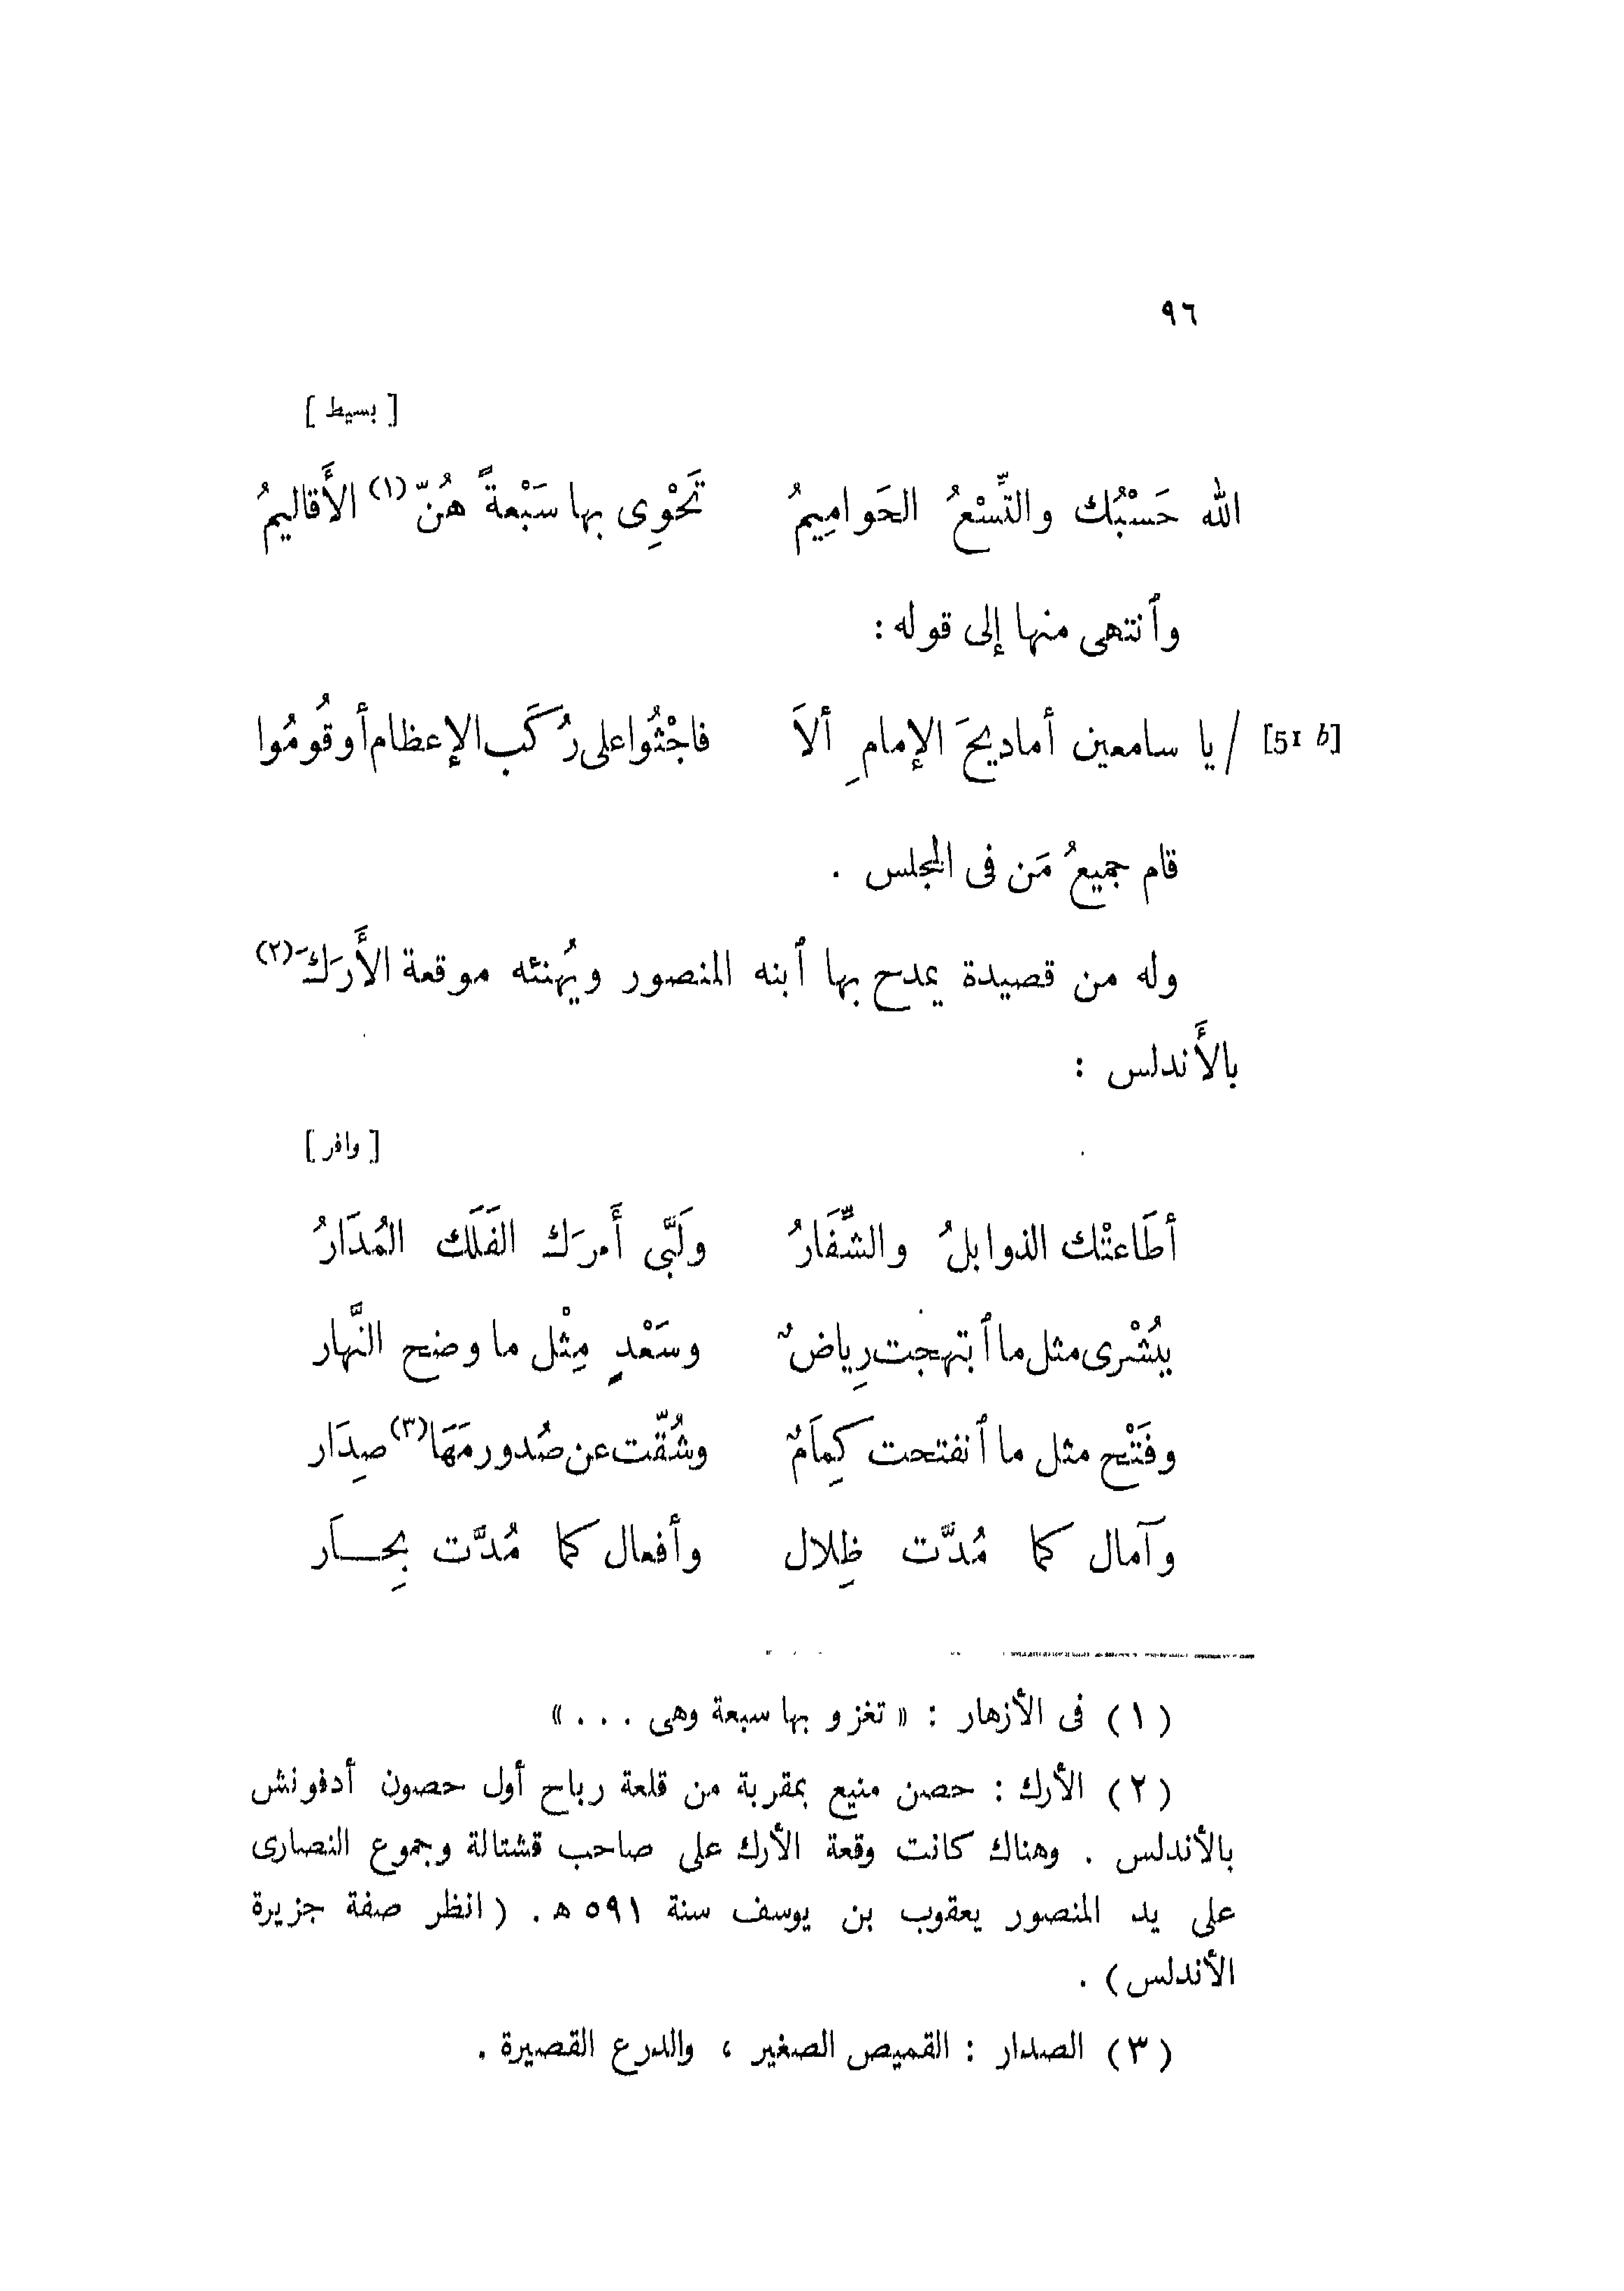 ٩٦
[ بسيط ]
الله حَسْبُك والتِّسْعُ الحَوامِيمُ تَحْوِى بها سَبْعةً هُنّ (١) الأَقاليمُ
وٱنتهى منها إلى قوله :
[51 b] / يا سامعين أماديحَ الإمامِ ألاَ فاجْثُوا على رُكَب الإعظام أو قُومُوا
قام جميعُ مَن فى المجلس .
وله من قصيدة يمدح بها ٱبنه المنصور ويُهنئه موقعة الأَرَكَ (٢)
بالأَندلس :
[ وافر ]
أطَاعتْك الذوابلُ والشِّفَارُ ولَبَّى أَمرَك الفَلَك المُدَارُ
ببُشْرى مثل ما ٱبتهجت رِياضٌ وسَعْدٍ مِثْل ما وضح النَّهار
وفَتْح مثل ما ٱنفتحت كِمَامٌ وشُقّت عن صُدور مَهَا (٣) صِدَار
وآمال كما مُدَّت ظِلال وأفعال كما مُدَّت بِحـــار
(١) فى الأزهار : « تغزو بها سبعة وهى . . . »
(٢) الأرك : حصن منيع بمقربة من قلعة رباح أول حصون أدفونش
بالأندلس . وهناك كانت وقعة الأرك على صاحب قشتالة وجموع النصارى
على يد المنصور يعقوب بن يوسف سنة ٥٩١ ه . ( انظر صفة جزيرة
الأندلس ) .
(٣) الصدار : القميص الصغير ، والدرع القصيرة .